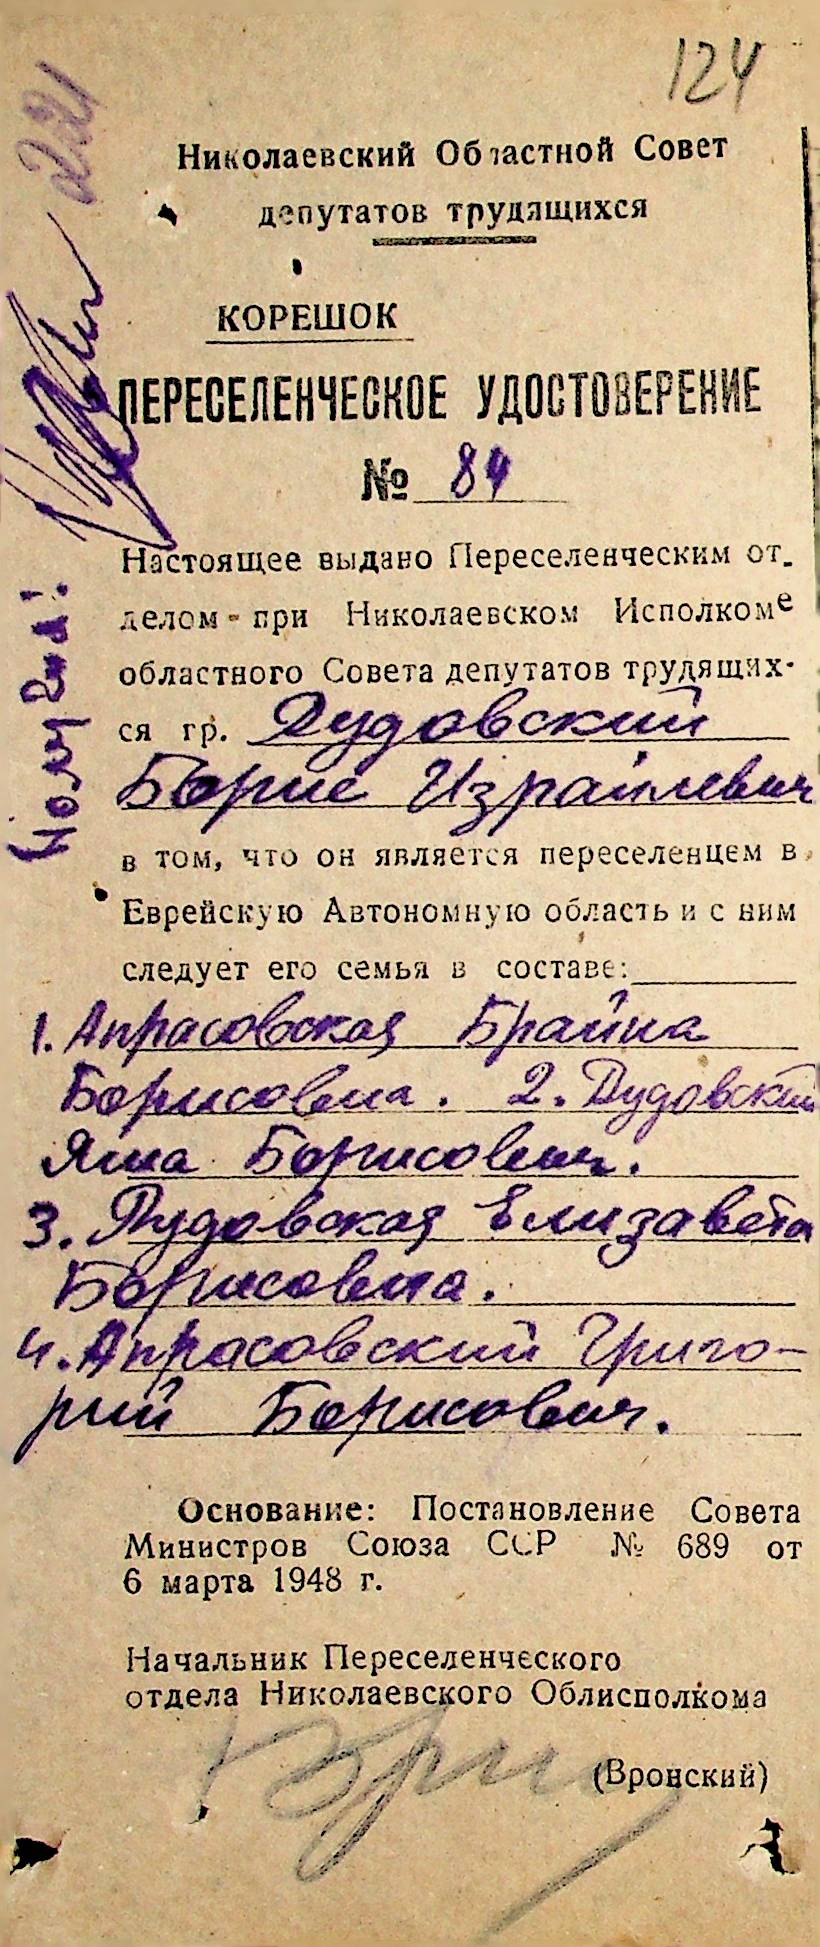 124
221
Николаевский Областной Совет
депутатов трудящихся
КОРЕШОК
ПЕРЕСЕЛЕНЧЕСКОЕ УДОСТОВЕРЕНИЕ
№ 84
Настоящее выдано Переселенческим от-
делом при Николаевском Исполкоме
областного Совета депутатов трудящих-
ся гр. Дудовский
Борис Израилевич
в том, что он является переселенцем в
Еврейскую Автономную область и с ним
следует его семья в составе:
1. Апрасовская Брайна
Борисовна. 2. Дудовский
Яша Борисович.
3. Дудовская Елизавета
Борисовна.
4. Апрасовский Григо-
рий Борисович.
Основание: Постановление Совета
Министров Союза ССР № 689 от
6 марта 1948 г.
Начальник Переселенческого
отдела Николаевского Облисполкома
(Вронский)